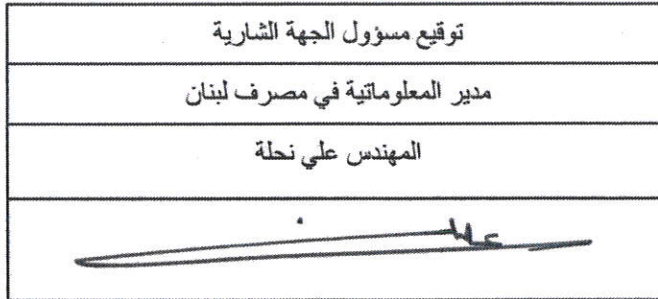 توقيع مسؤول الجهة الشارية
مدير المعلوماتية في مصرف لبنان
المهندس علي نحلة